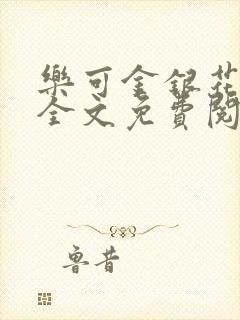 樂可金銀花
全文免費閱
魯昔